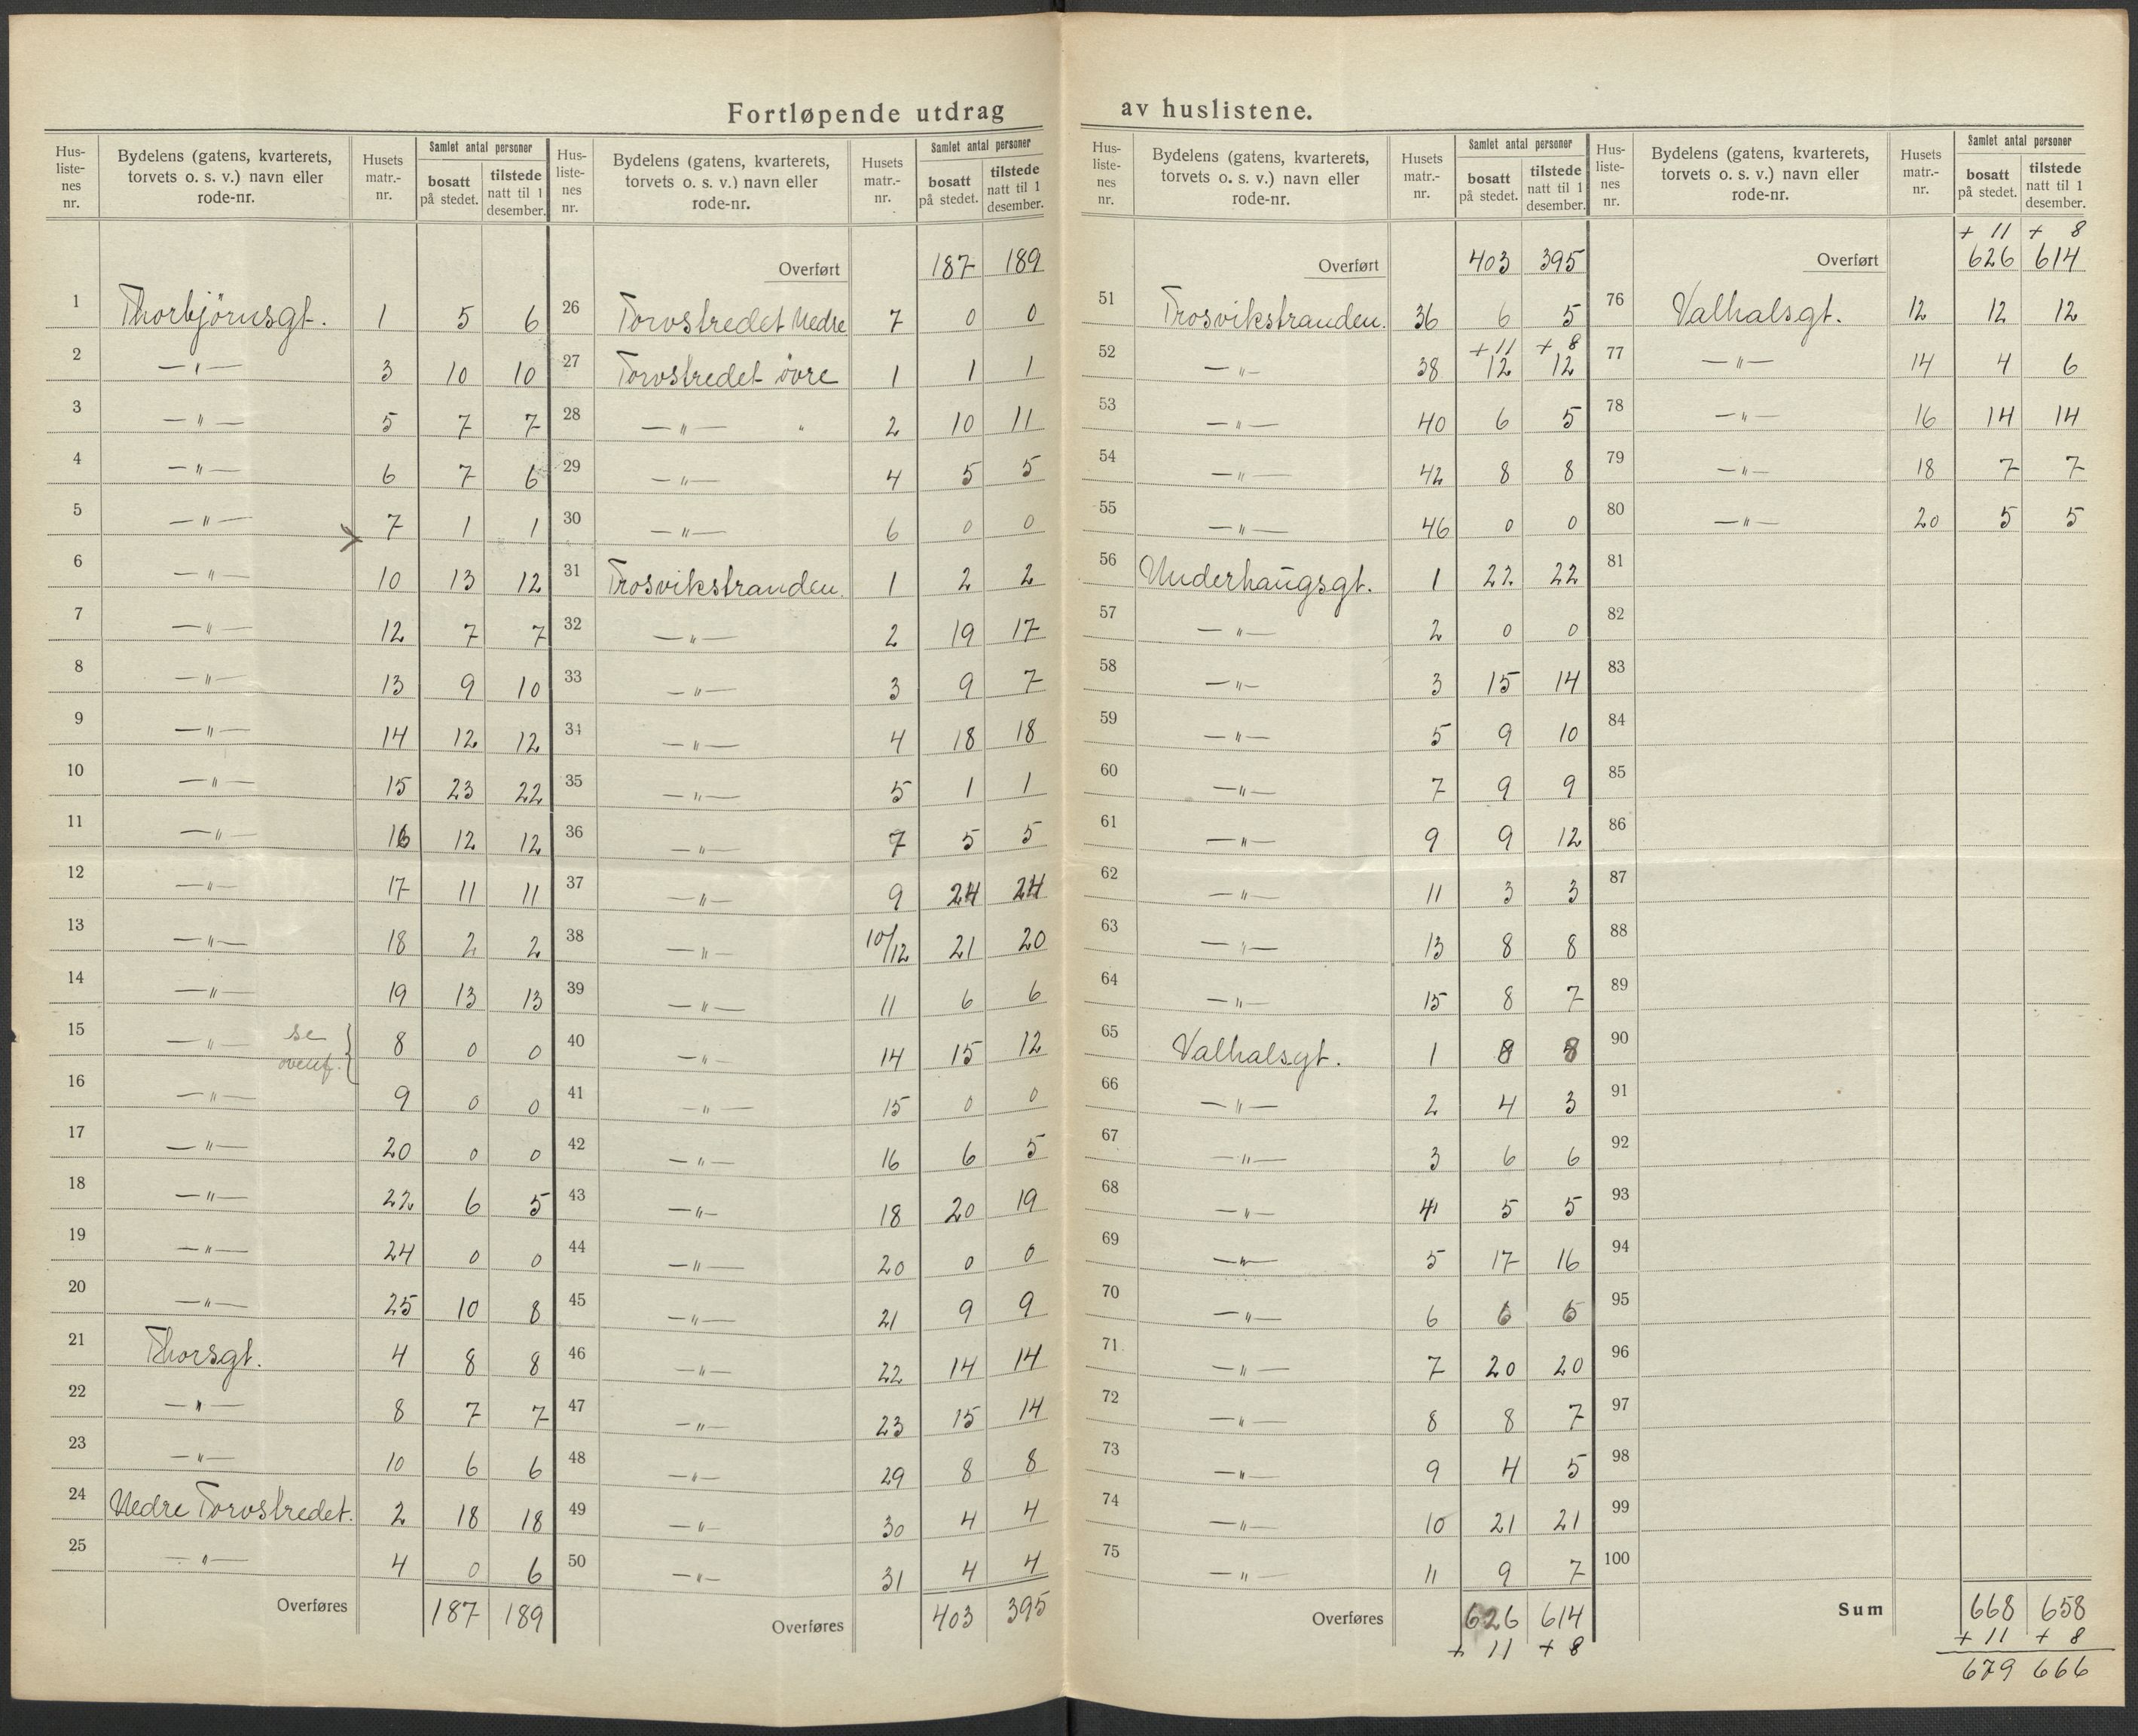 Fortløpende utdrag av huslistene.
Hus-liste-nes nr. | Bydelens (gatens, kvarterets, torvets o. s. v.) navn eller rode-nr. | Husets matr.-nr. | Samlet antal personer bosatt på stedet. | tilstede natt til 1 desember.
1 Thorbjörnsgt. 1 5 6
2 —"— 3 10 10
3 —"— 5 7 7
4 —"— 6 7 6
5 —"— 7 1 1
6 —"— 10 13 12
7 —"— 12 7 7
8 —"— 13 9 10
9 —"— 14 12 12
10 —"— 15 23 22
11 —"— 16 12 12
12 —"— 17 11 11
13 —"— 18 2 2
14 —"— 19 13 13
15 —"— se ovenf. 8 0 0
16 —"— 9 0 0
17 —"— 20 0 0
18 —"— 22 6 5
19 —"— 24 0 0
20 —"— 25 10 8
21 Thorsgt. 4 8 8
22 —"— 8 7 7
23 —"— 10 6 6
24 Nedre Torvstredet. 2 18 18
25 —"— 4 0 6
Overføres 187 189
Hus-liste-nes nr. | Bydelens (gatens, kvarterets, torvets o. s. v.) navn eller rode-nr. | Husets matr.-nr. | Samlet antal personer bosatt på stedet. | tilstede natt til 1 desember.
Overført 187 189
26 Torvstredet Nedre 7 0 0
27 Torvstredet övre 1 1 1
28 —"— " 2 10 11
29 —"— 4 5 5
30 —"— 6 0 0
31 Trosvikstranden. 1 2 2
32 —"— 2 19 17
33 —"— 3 9 7
34 —"— 4 18 18
35 —"— 5 1 1
36 —"— 7 5 5
37 —"— 9 24 24
38 —"— 10/12 21 20
39 —"— 11 6 6
40 —"— 14 15 12
41 —"— 15 0 0
42 —"— 16 6 5
43 —"— 18 20 19
44 —"— 20 0 0
45 —"— 21 9 9
46 —"— 22 14 14
47 —"— 23 15 14
48 —"— 29 8 8
49 —"— 30 4 4
50 —"— 31 4 4
Overføres 403 395
Hus-liste-nes nr. | Bydelens (gatens, kvarterets, torvets o. s. v.) navn eller rode-nr. | Husets matr.-nr. | Samlet antal personer bosatt på stedet. | tilstede natt til 1 desember.
Overført 403 395
51 Trosvikstranden. 36 6 5
+ 11 + 8
52 —"— 38 12 12
53 —"— 40 6 5
54 —"— 42 8 8
55 —"— 46 0 0
56 Underhaugsgt. 1 22 22
57 —"— 2 0 0
58 —"— 3 15 14
59 —"— 5 9 10
60 —"— 7 9 9
61 —"— 9 9 12
62 —"— 11 3 3
63 —"— 13 8 8
64 —"— 15 8 7
65 Valhalsgt. 1 8 8
66 —"— 2 4 3
67 —"— 3 6 6
68 —"— 4 5 5
69 —"— 5 17 16
70 —"— 6 6 6
71 —"— 7 20 20
72 —"— 8 8 7
73 —"— 9 4 5
74 —"— 10 21 21
75 —"— 11 9 7
Overføres 626 614
+ 11 + 8
Hus-liste-nes nr. | Bydelens (gatens, kvarterets, torvets o. s. v.) navn eller rode-nr. | Husets matr.-nr. | Samlet antal personer bosatt på stedet. | tilstede natt til 1 desember.
+ 11 + 8
Overført 626 614
76 Valhalsgt. 12 12 12
77 —"— 14 4 6
78 —"— 16 14 14
79 —"— 18 7 7
80 —"— 20 5 5
81
82
83
84
85
86
87
88
89
90
91
92
93
94
95
96
97
98
99
100
Sum 668 658
+ 11 + 8
679 666